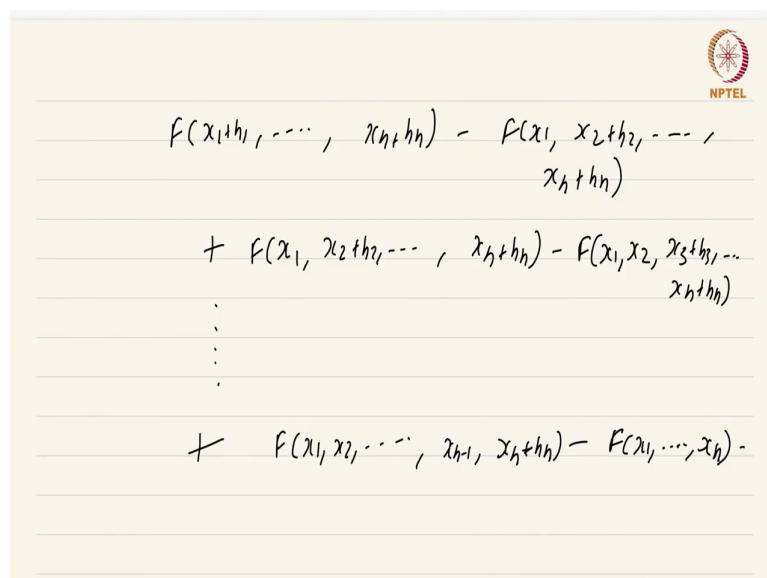 NPTEL
F(x1+h1, ----, xn+hn) - F(x1, x2+h2, ---,
xn+hn)
+ F(x1, x2+h2, ---, xn+hn) - F(x1, x2, x3+h3, ...
xn+hn)
+ F(x1, x2, ----, xn-1, xn+hn) - F(x1, ..., xn) -